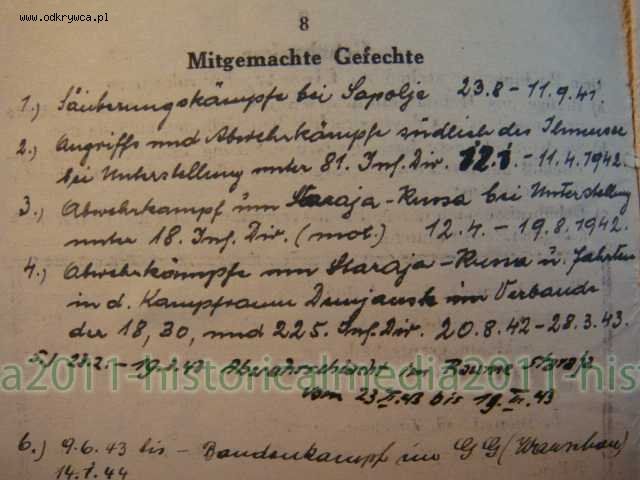 www.odkrywca.pl
8
Mitgemachte Gefechte
1.) Säuberungskämpfe bei Sapolje 23.8 - 11.9.41.
2.) Angriffs und Abwehrkämpfe südlich des Ilmensee
bei Unterstellung unter 81. Inf. Div. 12.1. - 11.4.1942.
3.) Abwehrkampf um Staraja-Russa bei Unterstellung
unter 18. Inf. Div. (mot.) 12.4. - 19.8.1942.
4.) Abwehrkämpfe um Staraja-Russa u. Fahrten
in d. Kampfraum Demjansk im Verbande
der 18, 30, und 225. Inf. Div. 20.8.42-28.3.43.
5.) 23.2. - 19.3.43 Abwehrschlacht im Raume Staraja
a2011-historicalmedia2011-hist
vom 23.II.43 bis 19.III.43
6.) 9.6.43 bis - Bandenkampf im GG (Warschau)
14.1.44